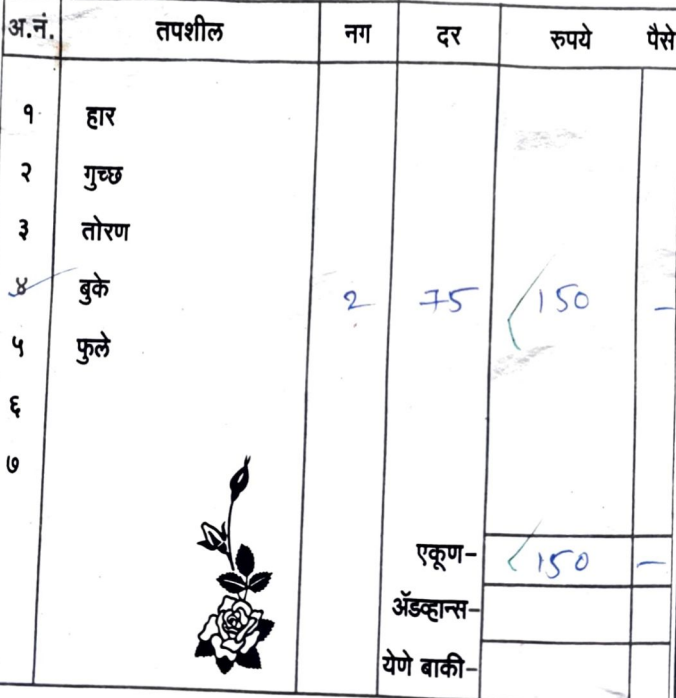 अ.नं. तपशील नग दर रुपये पैसे
१ हार
२ गुच्छ
३ तोरण
४ बुके 2 75 150 -
५ फुले
६
७
एकूण- 150 -
ॲडव्हान्स-
येणे बाकी-